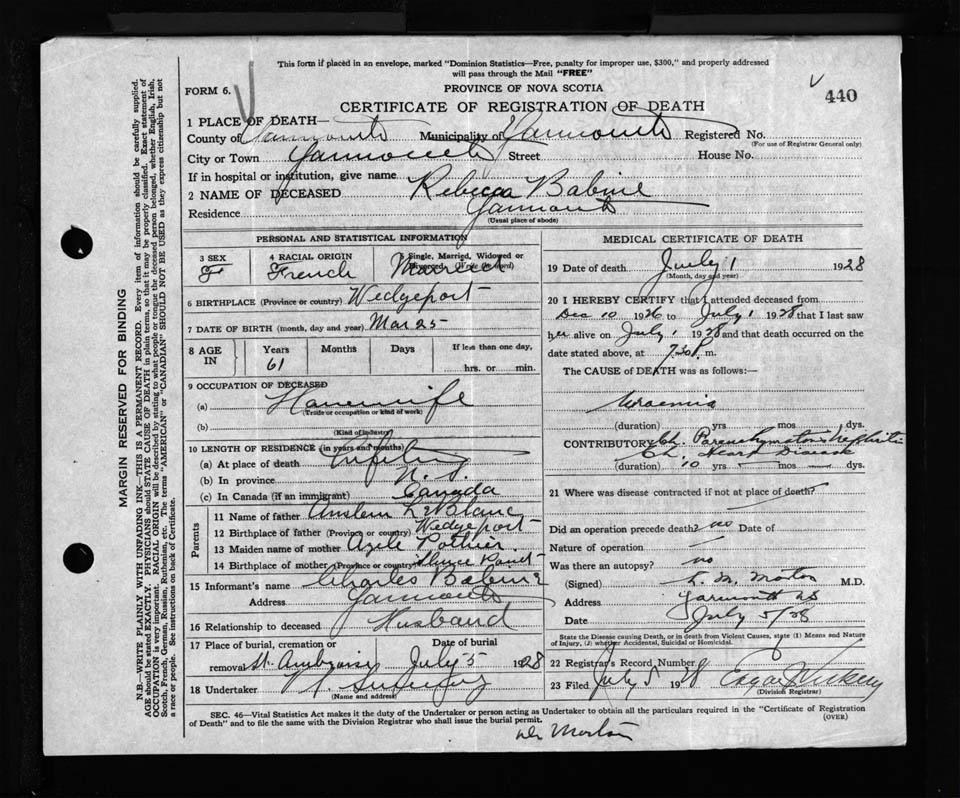 This form if placed in an envelope, marked "Dominion Statistics—Free, penalty for improper use, $300," and properly addressed
will pass through the Mail "FREE"
FORM 6.
PROVINCE OF NOVA SCOTIA
440
CERTIFICATE OF REGISTRATION OF DEATH
1 PLACE OF DEATH—
County of Yarmouth Municipality of Yarmouth Registered No.
(For use of Registrar General only)
City or Town Yarmouth Street House No.
If in hospital or institution, give name
2 NAME OF DECEASED Rebecca Babine
Residence Yarmouth
(Usual place of abode)
PERSONAL AND STATISTICAL INFORMATION
3 SEX 4 RACIAL ORIGIN Single, Married, Widowed or
Divorced
F French Married
6 BIRTHPLACE (Province or country) Wedgeport
7 DATE OF BIRTH (month, day and year) Mar 25
8 AGE IN Years Months Days If less than one day,
61 hrs. or min.
9 OCCUPATION OF DECEASED
(a) Housewife
(Trade or occupation or kind of work)
(b)
(Kind of industry)
10 LENGTH OF RESIDENCE (in years and months)
(a) At place of death
(b) In province N.S.
(c) In Canada (if an immigrant) Canada
Parents
11 Name of father Anslem LeBlanc
12 Birthplace of father (Province or country) Wedgeport
13 Maiden name of mother Azele Pothier
14 Birthplace of mother (Province or country)
15 Informant's name Charles Babine
Address Yarmouth
16 Relationship to deceased Husband
17 Place of burial, cremation or Date of burial
removal St. Ambroise July 5 1928
18 Undertaker
(Name and address)
MEDICAL CERTIFICATE OF DEATH
19 Date of death July 1 1928
(Month, day and year)
20 I HEREBY CERTIFY that I attended deceased from
Dec 10 1926 to July 1 1928 that I last saw
her alive on July 1 1928 and that death occurred on
date stated above, at 7.30 P. m.
The CAUSE of DEATH was as follows:
Uraemia
(duration) yrs mos dys.
CONTRIBUTORY Ch. Parenchymatous Nephritis
Ch. Heart Disease
(duration) 10 yrs mos dys.
21 Where was disease contracted if not at place of death?
Did an operation precede death? no Date of
Nature of operation
Was there an autopsy? no
(Signed) L. M. Morton M.D.
Address Yarmouth NS
Date July 5/28
State the Disease causing Death, or in death from Violent Causes, state (1) Means and Nature
of Injury, (2) whether Accidental, Suicidal or Homicidal.
22 Registrar's Record Number
23 Filed July 5 1928 Edgar Vickery
(Division Registrar)
SEC. 46—Vital Statistics Act makes it the duty of the Undertaker or person acting as Undertaker to obtain all the particulars required in the "Certificate of Registration
of Death" and to file the same with the Division Registrar who shall issue the burial permit.
(OVER)
Dr Morton
MARGIN RESERVED FOR BINDING
N.B.—WRITE PLAINLY WITH UNFADING INK—THIS IS A PERMANENT RECORD. Every item of information should be carefully supplied.
AGE should be stated EXACTLY. PHYSICIANS should STATE CAUSE OF DEATH in plain terms, so that it may be properly classified. Exact statement of
OCCUPATION is very important. RACIAL ORIGIN will be described by stating to what people or tongue the deceased person belonged, whether English, Irish,
Scotch, French, German, Russian, Ruthenian, etc. The terms "AMERICAN" or "CANADIAN" SHOULD NOT BE USED as they express citizenship but not
a race or people. See instructions on back of Certificate.